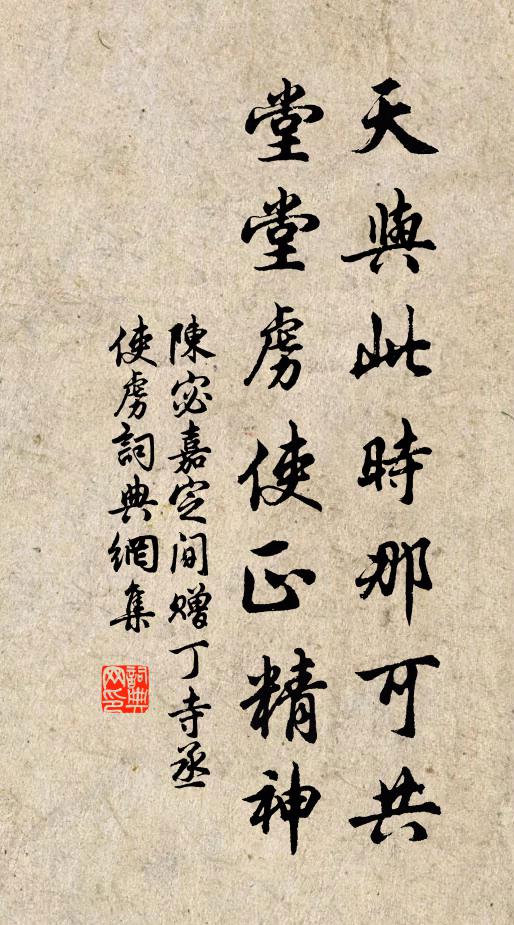 天與此時那可共
堂堂虜使正精神
陳宓嘉定间赠丁寺丞
使虜詞典網集
詞典
网印